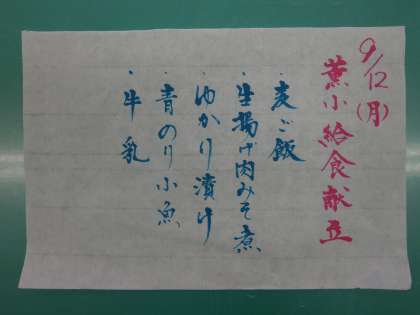 9/12(月)
薫小給食献立
・麦ご飯
・生揚げ肉みそ煮
・ゆかり漬け
・青のり小魚
・牛乳